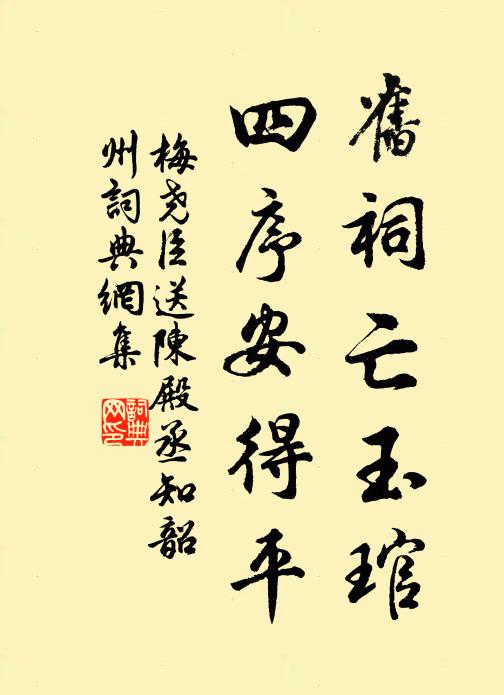 舊祠亡玉琯
四序安得平
梅堯臣送陳殿丞知韶
州詞典網集
詞典網印